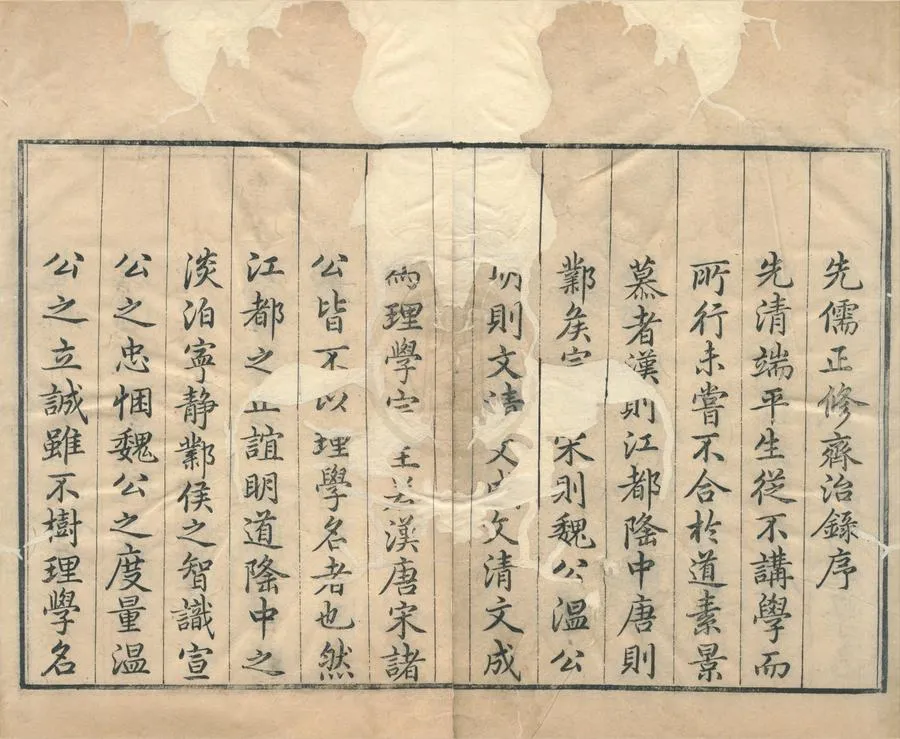 先儒正修齊治錄序
先清端平生從不講學而
所行未嘗不合於道素景
慕者漢則江都隆中唐則
鄴侯宣 宋則魏公溫公
明則文清文成文清文成
理學宗 至若漢唐宋諸
公皆不以理學名者也然
江都之正誼明道隆中之
淡泊寧静鄴侯之智識宣
公之忠悃魏公之度量溫
公之立誠雖不樹理學名